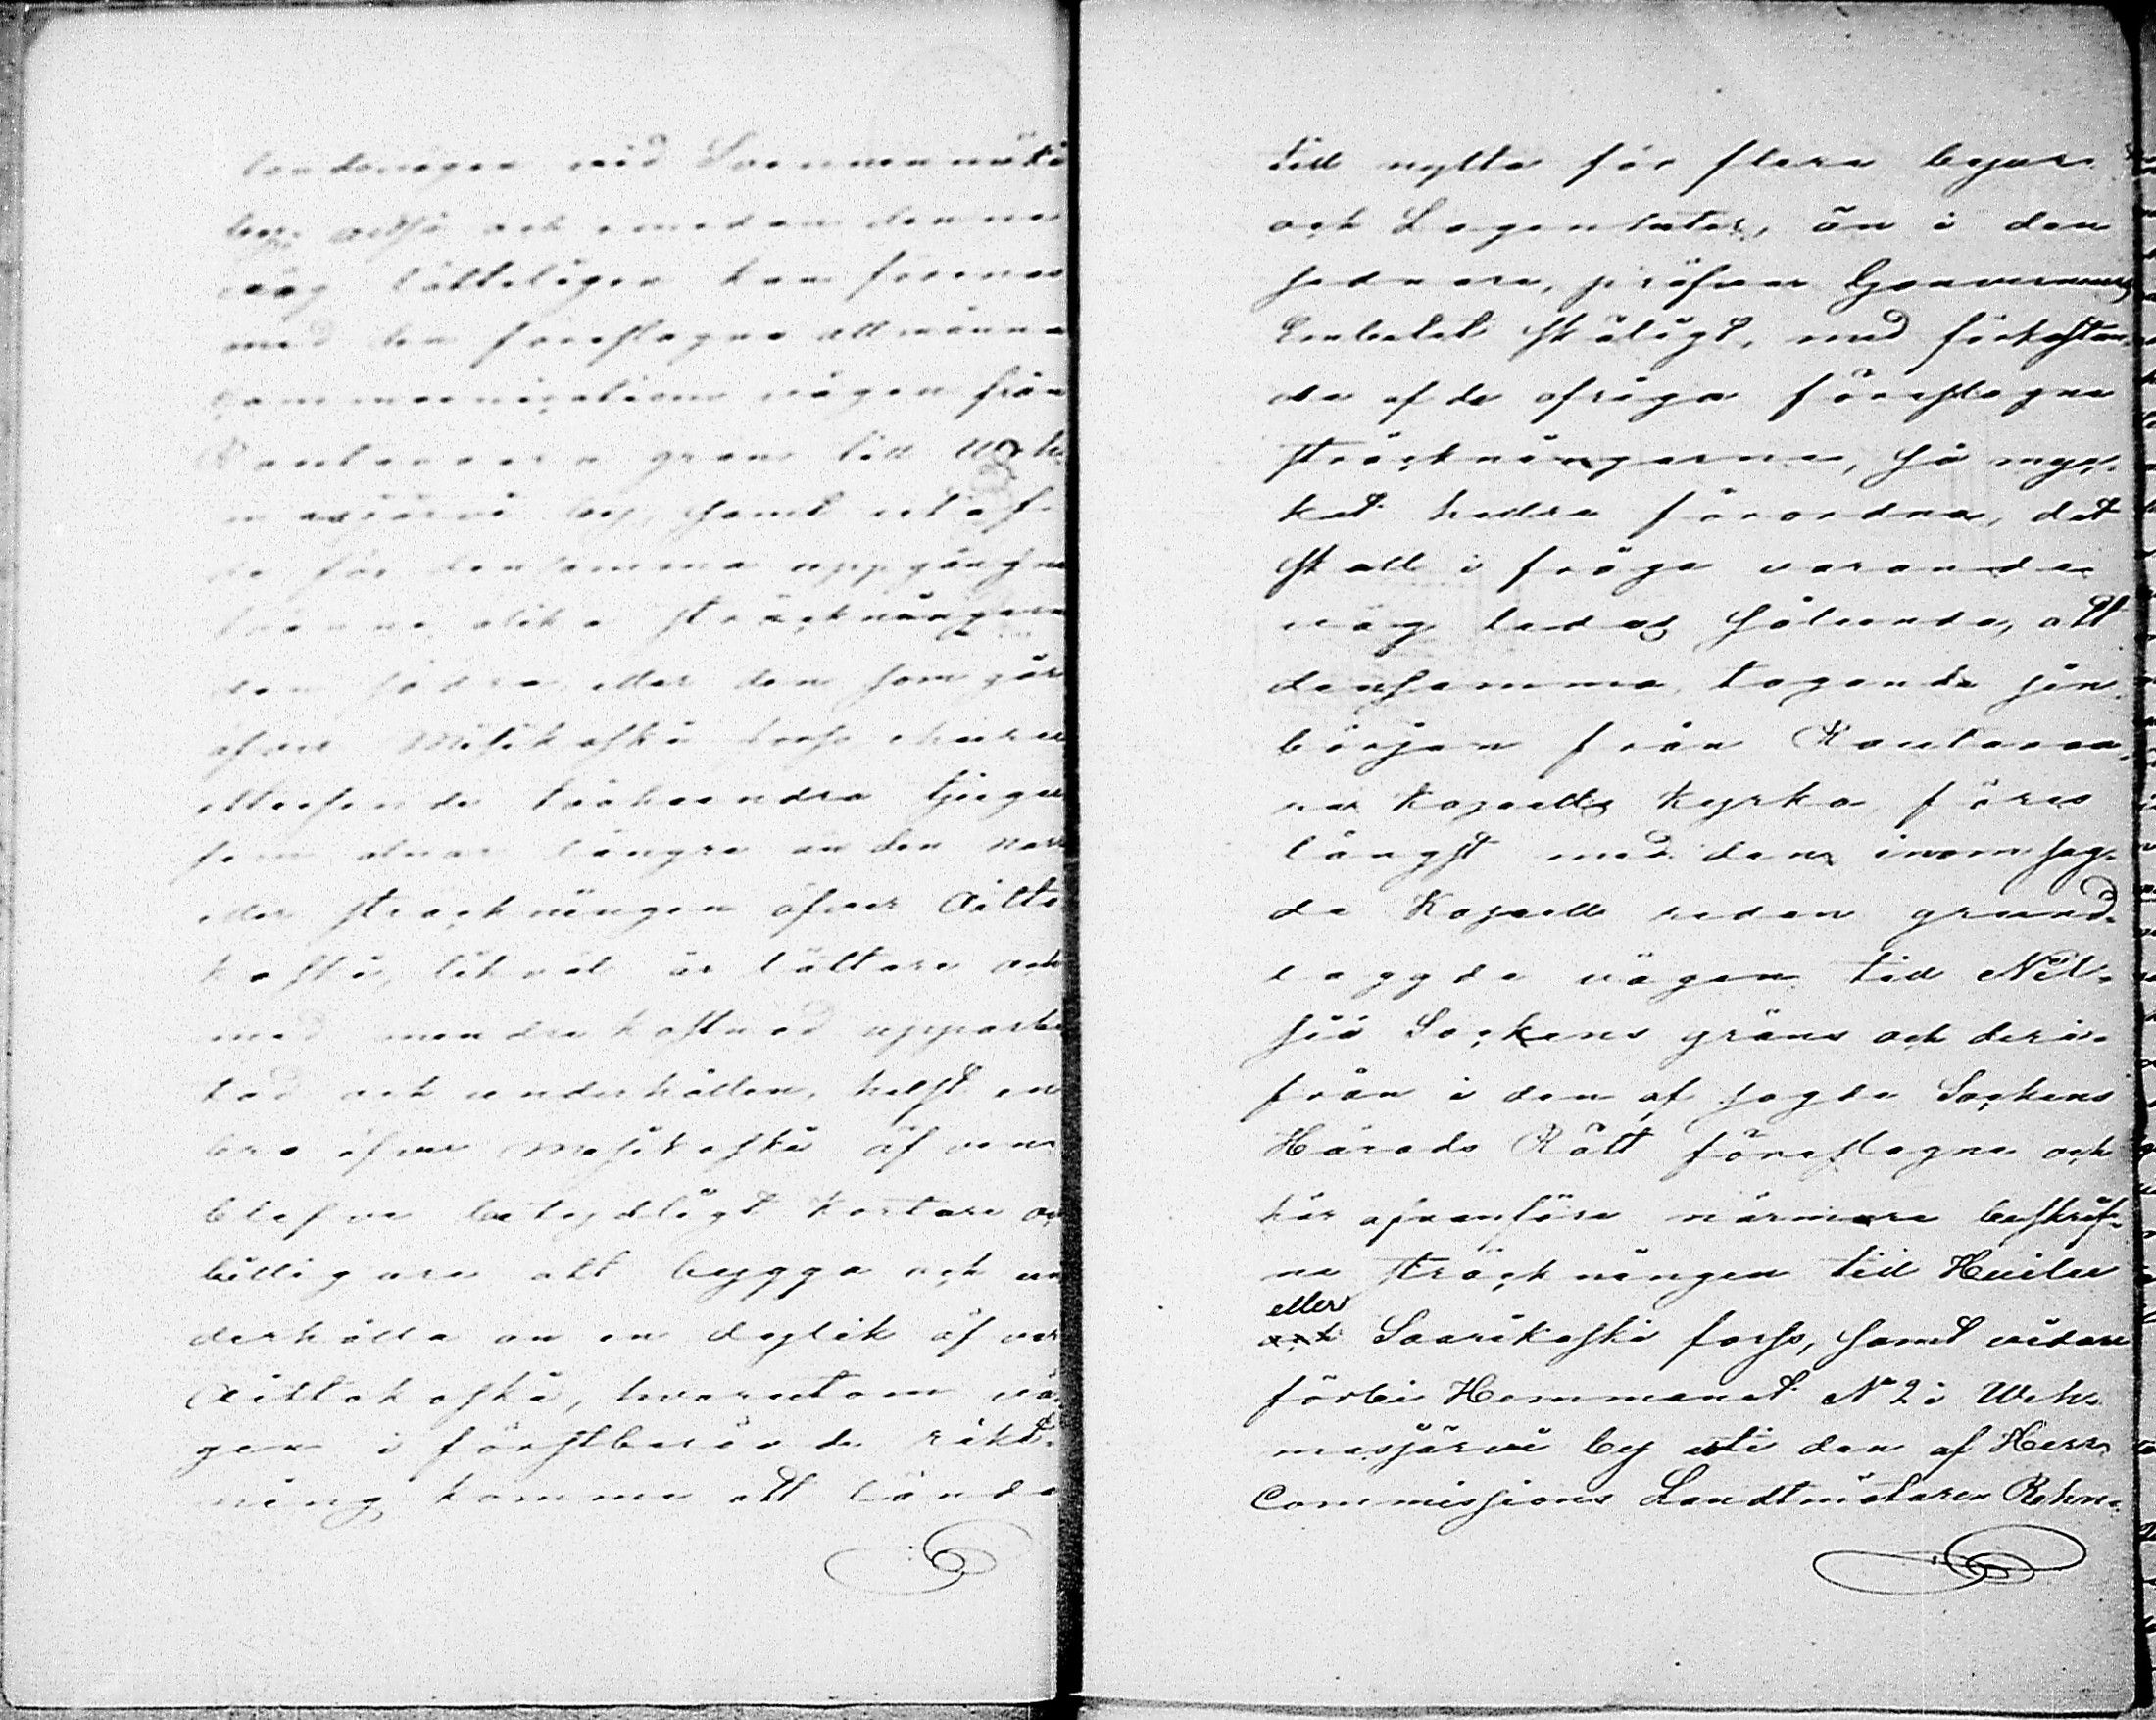 landsvägen vid Suonnenmäki
by, och emedan denna
väg lätteligen kan förenas
med den föreslagna allmänna
communications vägen från
Rautavaara gräns till Weh-
masjärvi by, samt utaf
de för densamma uppgångna
tvenne olika sträckningarna
den södra, eller den som går
öfver koski fors
ettusende tvåhundra tjugu
fem alnar längre än den norr
eller sträckningen öfver Aitto
koski, likväl är lättare och
med mindre kostnad upparbe
tad och underhållen, helst en
bro öfver koski äfven
blefve betydligt kortare oc
billigare att bygga och un
derhålla än en deylik öfver
Aittokoski, hvarutom vä-
gen i förstberörde rikt-
ning komme att lända
till nytta för flera byar
och Lägenheter, än i den
sednare, pröfvar Gouvernements
Embetet skäligt, med förkastan-
de af de öfriga föreslagna
sträckningarne, så myc-
ket hellre förordna, det
skall i fråga varande
väg ledas sålunda, att
densamma, tagande sin
början från Rautavaa-
ra Kapells Kyrka, föres
längst med den inom sag-
da Kapell redan grund-
lagda vägen till Nil-
siä Sockens gräns och deri-
från i den af sagde Sockens
Härads Rätt föreslagna och
här ofvanföre närmare beskrif-
na sträckningen till Huilu
eller
och Saarikoski forss, samt vidare
förbi Hemmanet No 2 i Weh-
masjärvi by uti den af Herr
Commissions Landtmätaren Rehn-